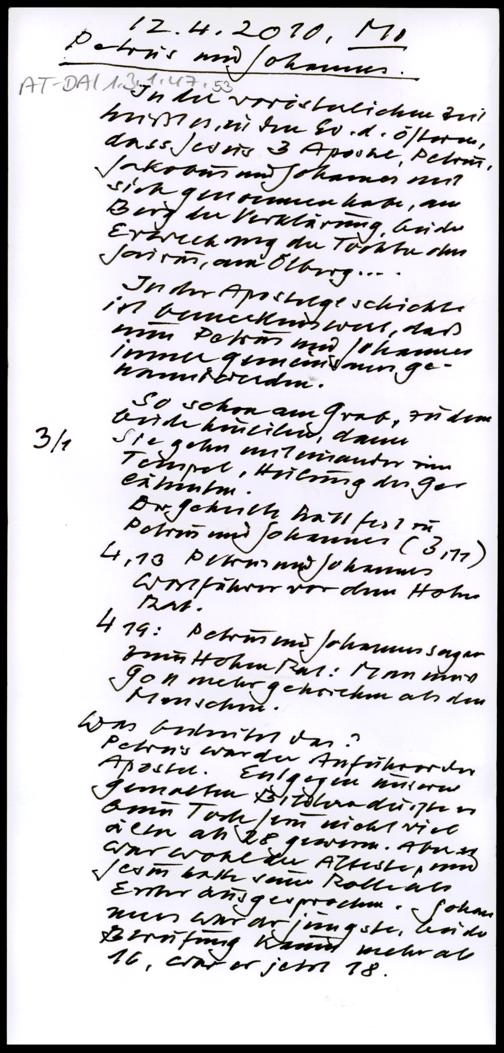 12.4.2010, Mo
Petrus und Johannes.
AT-DAI 1.3.1.47.53
In der vorösterlichen Zeit
heißt es, in den Ev. d. Ostern,
dass Jesus 3 Apostel, Petrus,
Jakobus und Johannes mit
sich genommen habe, am
Berg der Verklärung, bei der
Erweckung der Tochter des
Jairus, am Ölberg....
In der Apostelgeschichte
ist bemerkenswert, daß
nun Petrus und Johannes
immer gemeinsam ge-
nannt werden.
So schon am Grab, zu dem
beide hineilen, dann
3/1 Sie gehn miteinander im
Tempel, Heilung des Ge
lähmten.
Der geheilte hält fest zu
Petrus und Johannes (3,11)
4,13 Petrus und Johannes
Wortführer vor dem Hohen
Rat.
4 19: Petrus und Johannes sagen
zum Hohen Rat: Man muss
Gott mehr gehorchen als den
Menschen.
Was bedeutet das?
Petrus war der Anführer der
Apostel. Entgegen unseren
gemalten Bildern dürfte er
beim Tode Jesu nicht viel
älter als 28 gewesen. Aber er
war wohl der Älteste, und
Jesus hatte seine Rolle als
Erster ausgesprochen. Johan
nes war der jüngste, bei der
Berufung kaum mehr als
16, war er jetzt 18.